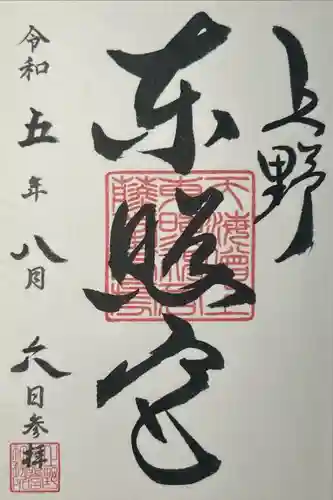 上野
東照宮
令和五年八月六日参拝